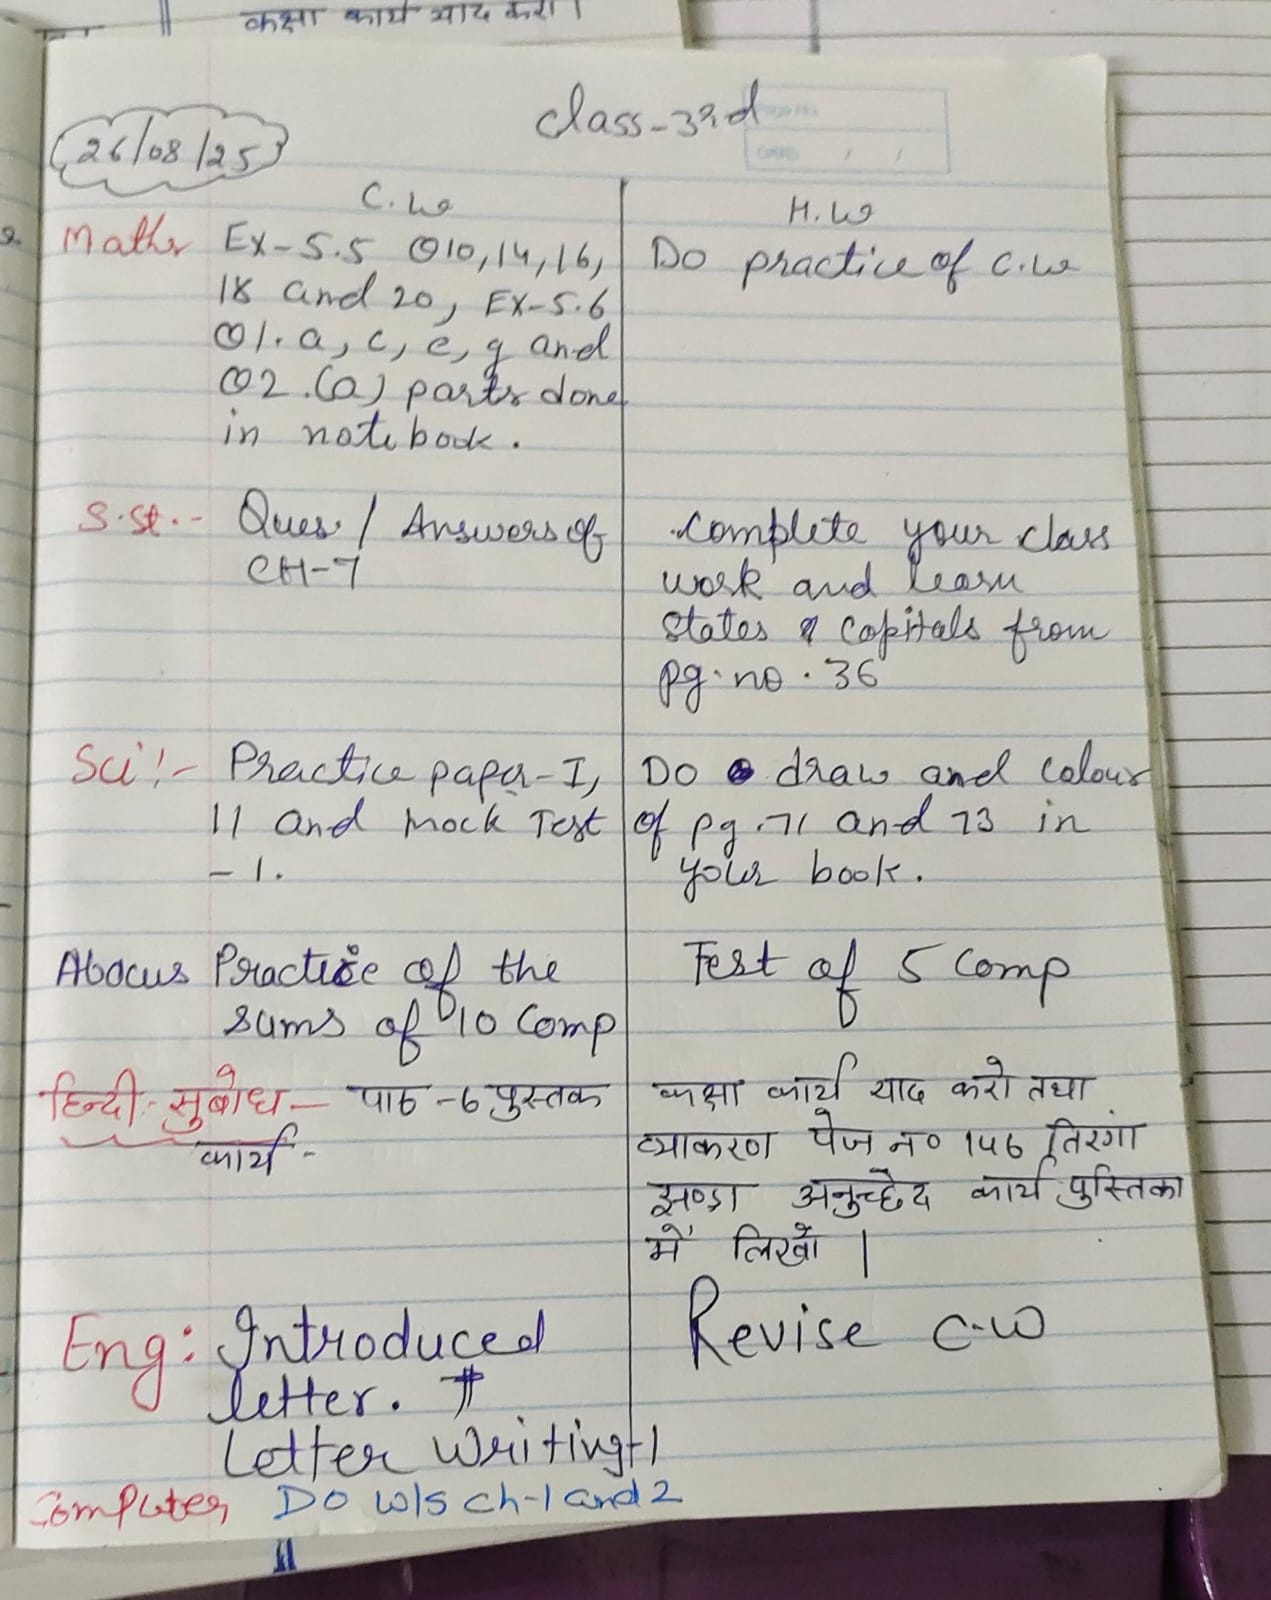 कक्षा कार्य याद करो।
Class-3rd
DATE / /
26/08/25
C.W
H.W
Maths Ex-5.5 Q10,14,16,
18 and 20, Ex-5.6
Q1. a, c, e, g and
Q2.(a) parts done
in notebook.
Do practice of C.W
S.St.- Ques/Answers of
CH-7
Complete your class
work and learn
states & capitals from
pg. no. 36
Sci:- Practice paper-I,
11 and Mock Test
-1.
Do draw and colour
of pg.71 and 73 in
your book.
Abacus Practice of the
sums of 10 Comp
Test of 5 Comp
हिन्दी:- सुबोध- पाठ-6 पुस्तक
कार्य-
कक्षा कार्य याद करो तथा
व्याकरण पेज न० 146 तिरंगा
झण्डा अनुच्छेद कार्य पुस्तिका
में लिखों।
Eng: Introduced
letter.
Letter Writing-1
Revise C-W
Computer, Do W/S Ch-1 and 2